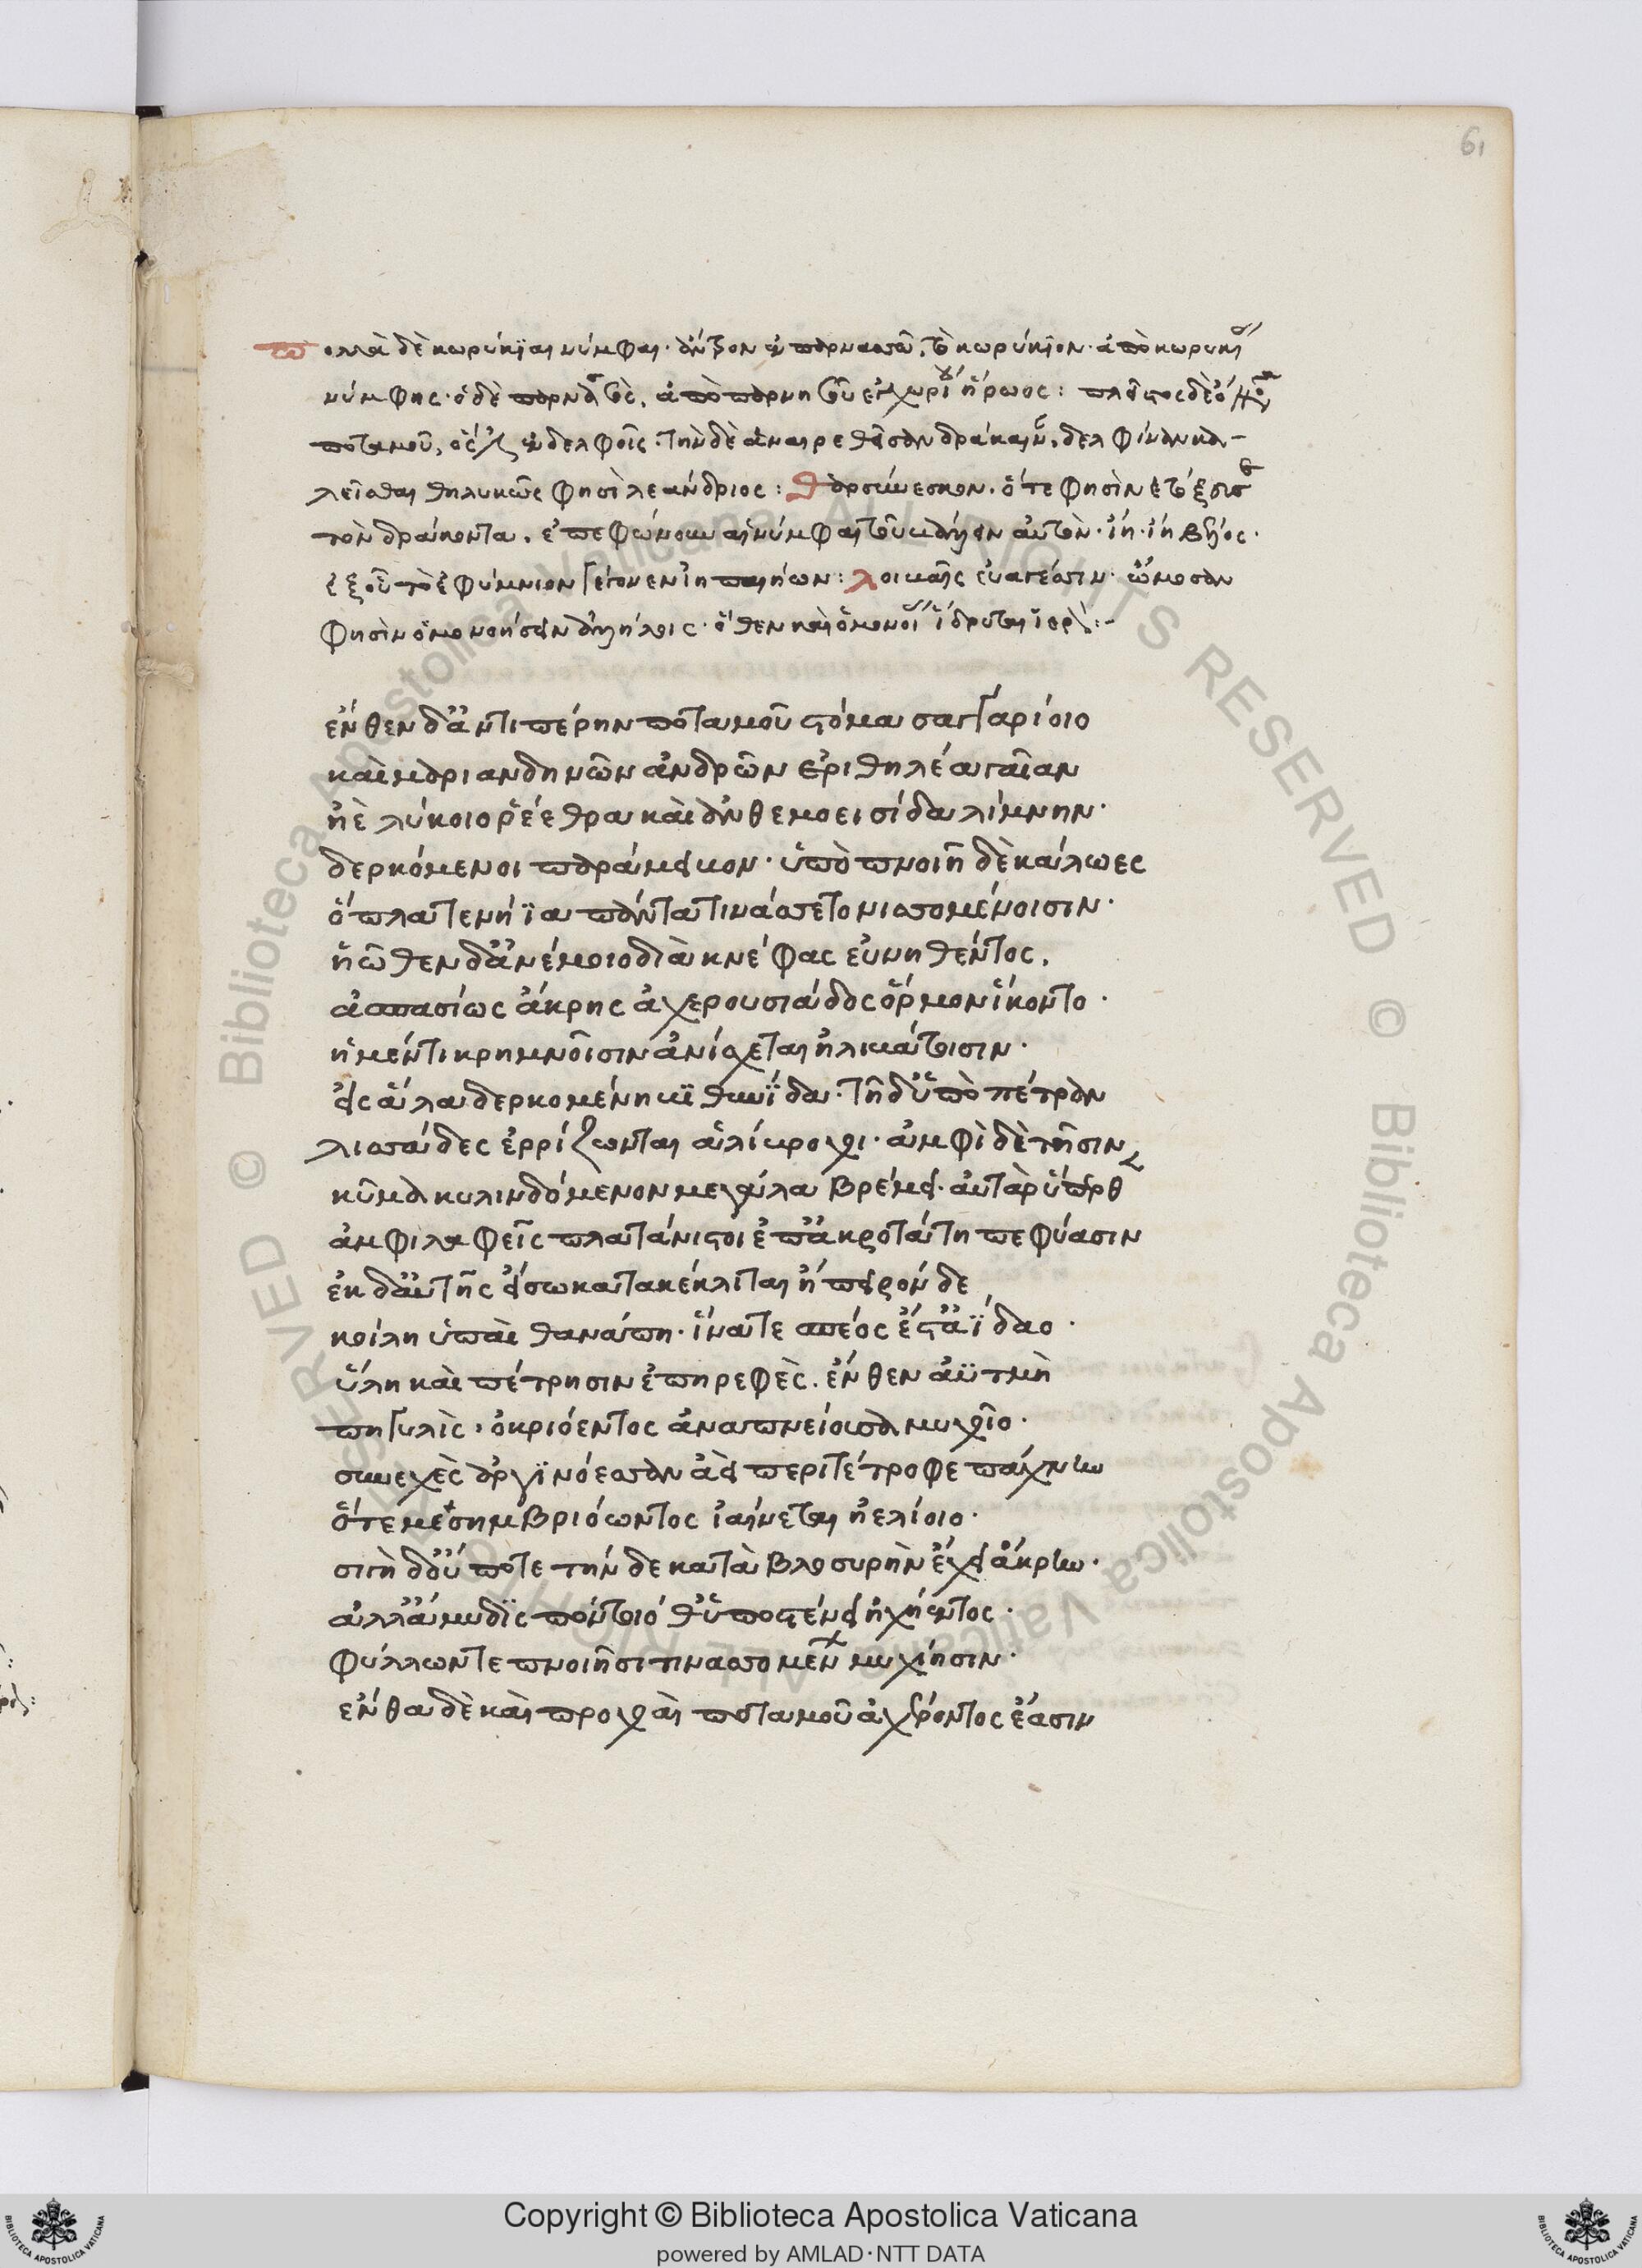 61
πολλὰ δὲ κωρύκϊαι νύμφαι· ἄντρον ἐν παρνασσῶ, τὸ κωρύκϊον· ἀπὸ κωρυκίας
νύμφης· ὁ δὲ παρνασὸς, ἀπὸ παρνησοῦ ἐγχωρίου ἥρωος: πλεῖστος δὲ ὄνομα
ποταμοῦ, ὅς ἐστιν ἐν δελφοῖς. τὴν δὲ ἀναιρεθεῖσαν δράκαιναν, δελφίναν κα-
λεῖσθαι θηλυκῶς φησὶ λεάνδριος: θαρσύνεσκον. ὅτε φησὶν ἐτόξευσε
τὸν δράκοντα, ἐπεφώνουν αἱ νύμφαι τοῦτο αὐτὸν· ἰὴ· ἰὴ
ἐξ οὗ τὸ ἐφύμνιον γέγονεν ἰὴ παιήων: λοιβαῖς εὐαγέσιν· ὤμοσαν
φησὶν ὁμονοήσειν ἀλλήλοις· ὅθεν καὶ ὁμονοίας ἵδρυται ἱερόν:-
ἔνθεν δ' ἀντιπέρην ποταμοῦ στόμα σαγγαρίοιο
καὶ μαριανδηνῶν ἀνδρῶν ἐριθηλέα γαῖαν
ἠὲ λύκοιο ῥέεθρα καὶ ἀνθεμοεισίδα λίμνην·
δερκόμενοι παράμειβον· ὑπὸ πνοιῆ δὲ κάλωες
ὅπλα τε νήϊα πάντα τινάσσετο νισσομένοισιν·
ἠῶθεν δ' ἀνέμοιο διὰ κνέφας εὐνηθέντος,
ἀσπασίως ἄκρης ἀχερουσιάδος ὅρμον ἵκοντο·
ἡ μέν τι κρημνοῖσιν ἀνίσχεται ἠλιβάτοισιν·
εἰς ἅλα δερκομένη βιθυνΐδα· τῆ δ' ὑπὸ πέτραν
λισσάδες ἐρρίζωνται ἁλίβροχοι· ἀμφὶ δὲ τῆσιν
κῦμα κυλινδόμενον μεγάλα βρέμει· αὐτὰρ ὕπερθε
ἀμφιλαφεῖς πλατάνιστοι ἐπ' ἀκροτάτη πεφύασιν
ἐκ δ' αὐτῆς εἴσω κατακέκλιται ἤπειρόν δε
κοίλη ὑπαὶ θανάπη· ἵνα τε σπέος ἔστ' ἀΐδαο·
ὕλη καὶ πέτρησιν ἐπηρεφὲς. ἔνθεν ἀϋτμὴ
πηγυλὶς, ὀκριόεντος ἀναπνείουσα μυχοῖο·
συνεχὲς ἀργϊνόεσσαν ἀεὶ περιτέτροφε πάχνην
ὅτε μεσημβριόωντος ἰαίνεται ἠελίοιο·
σιγὴ δ' οὔποτε τήν δε κατὰ βλοσυρὴν ἔχει ἄκρην·
ἀλλ' ἄμυδϊς πόντοιό θ' ὑποστένει ἠχήεντος·
φύλλων τε πνοιῆσι τινασσομένων μυχίησιν·
ἔνθα δὲ καὶ προχοαὶ ποταμοῦ ἀχέροντος ἔασιν
Copyright © Biblioteca Apostolica Vaticana
powered by AMLAD·NTT DATA